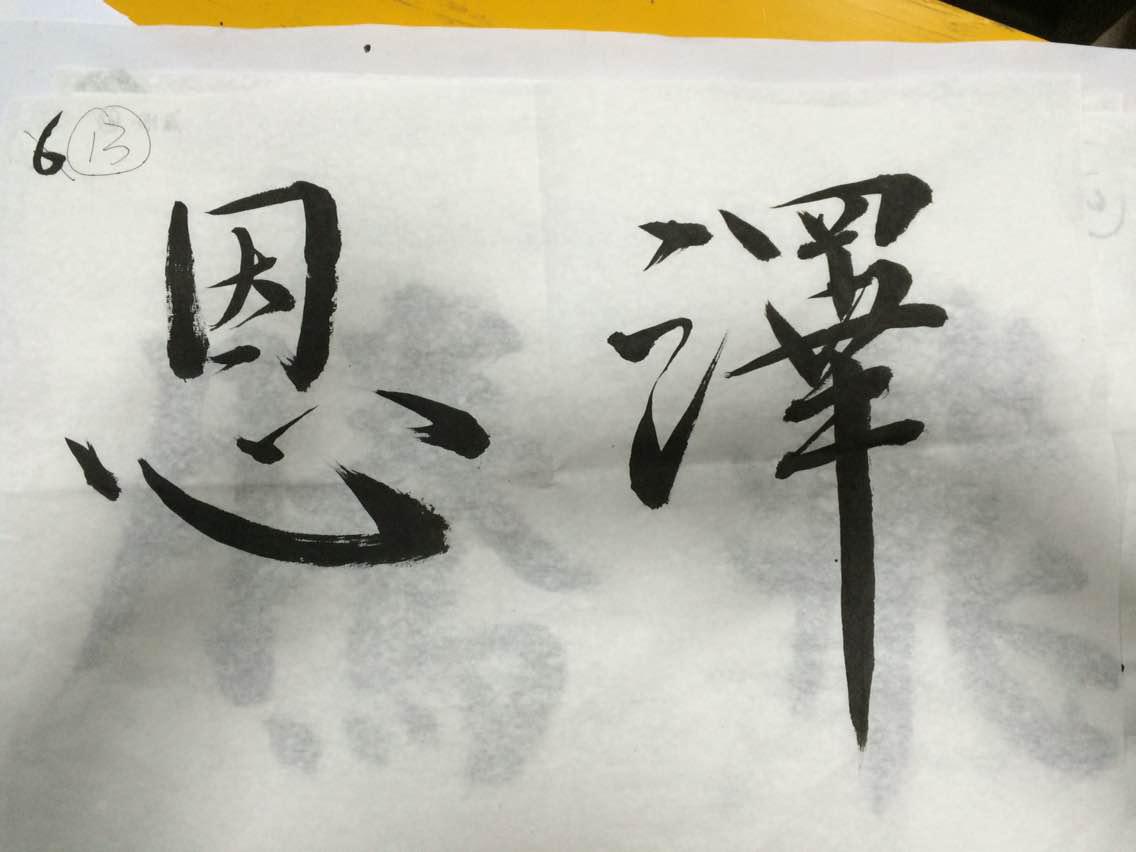 6 13
恩澤